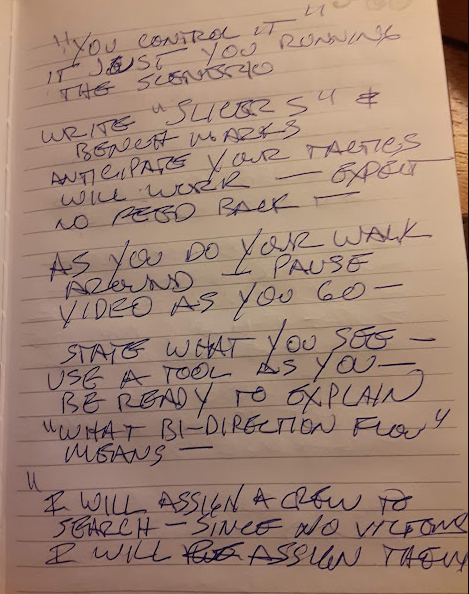 "YOU CONTROL IT"
IT JUST YOU RUNNING
THE SCENERIO
WRITE "SLICERS" &
BENCH MARKS
ANTICIPATE YOUR TACTICS
WILL WORK — EXPECT
NO FEED BACK —
AS YOU DO YOUR WALK
AROUND — PAUSE
VIDEO AS YOU GO —
STATE WHAT YOU SEE —
USE A TOOL AS YOU —
BE READY TO EXPLAIN
"WHAT BI-DIRECTION FLOW"
MEANS —
"
I WILL ASSIGN A CREW TO
SEARCH — SINCE NO VICTIMS
I WILL ASSIGN THEM